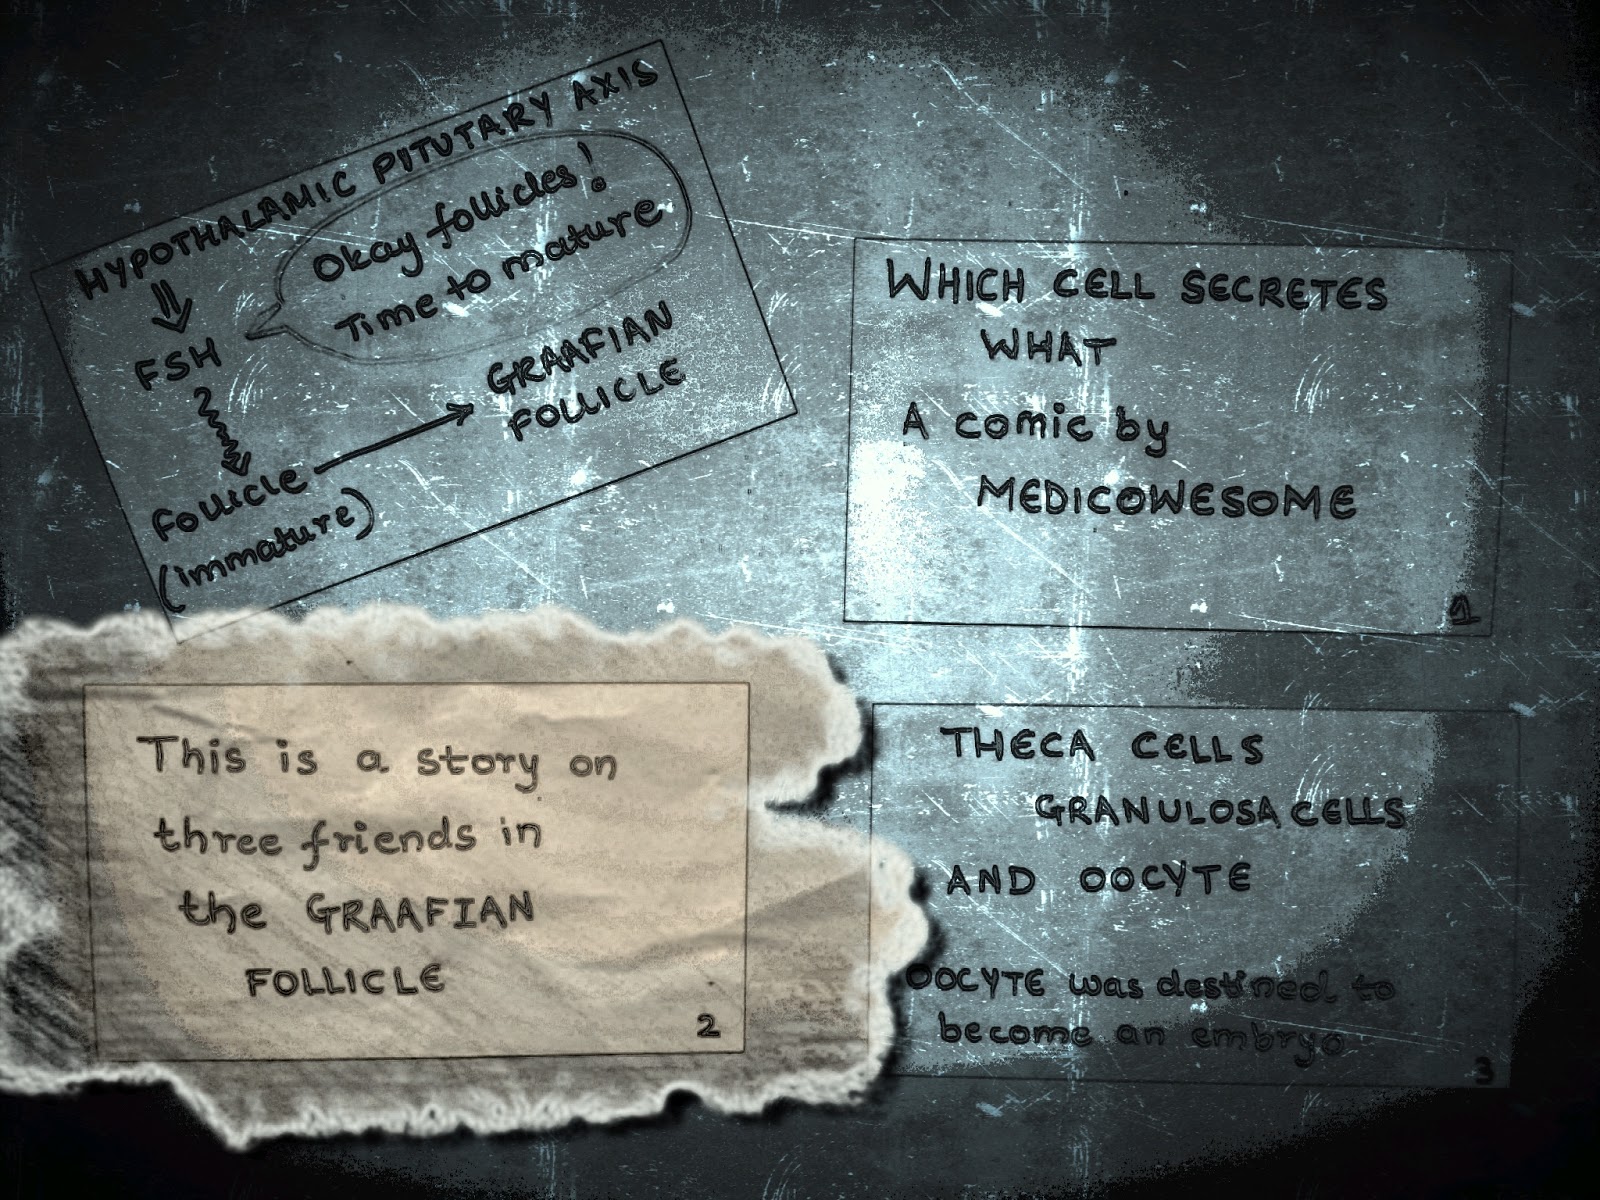 HYPOTHALAMIC PITUTARY AXIS
Okay follicles!
Time to mature
FSH
GRAAFIAN
FOLLICLE
Follicle
(immature)
WHICH CELL SECRETES
WHAT
A comic by
MEDICOWESOME
1
This is a story on
three friends in
the GRAAFIAN
FOLLICLE
2
THECA CELLS
GRANULOSA CELLS
AND OOCYTE
OOCYTE was destined to
become an embryo
3